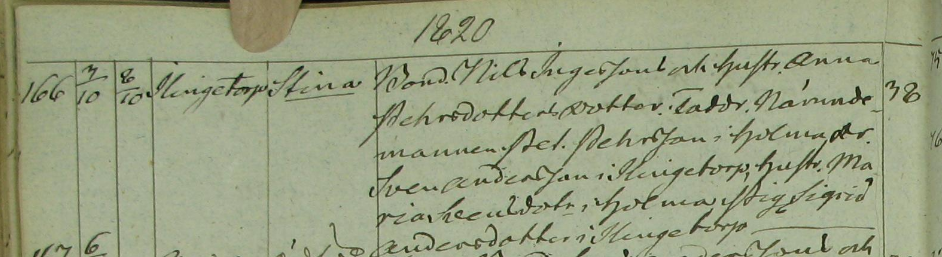 1820
166 7/10 8/10 Klingetorp Stina Bond. Nils Ingessons och Hustr. Anna 38
Pehrsdotters dotter. Faddr. Nämnde-
mannen Pet. Pehrsson i Holma, dr.
Sven Andersson i Klingetorp, hustr. Ma
ria i Holma, Pig. Sigrid
Andersdotter i Klingetorp
6 och